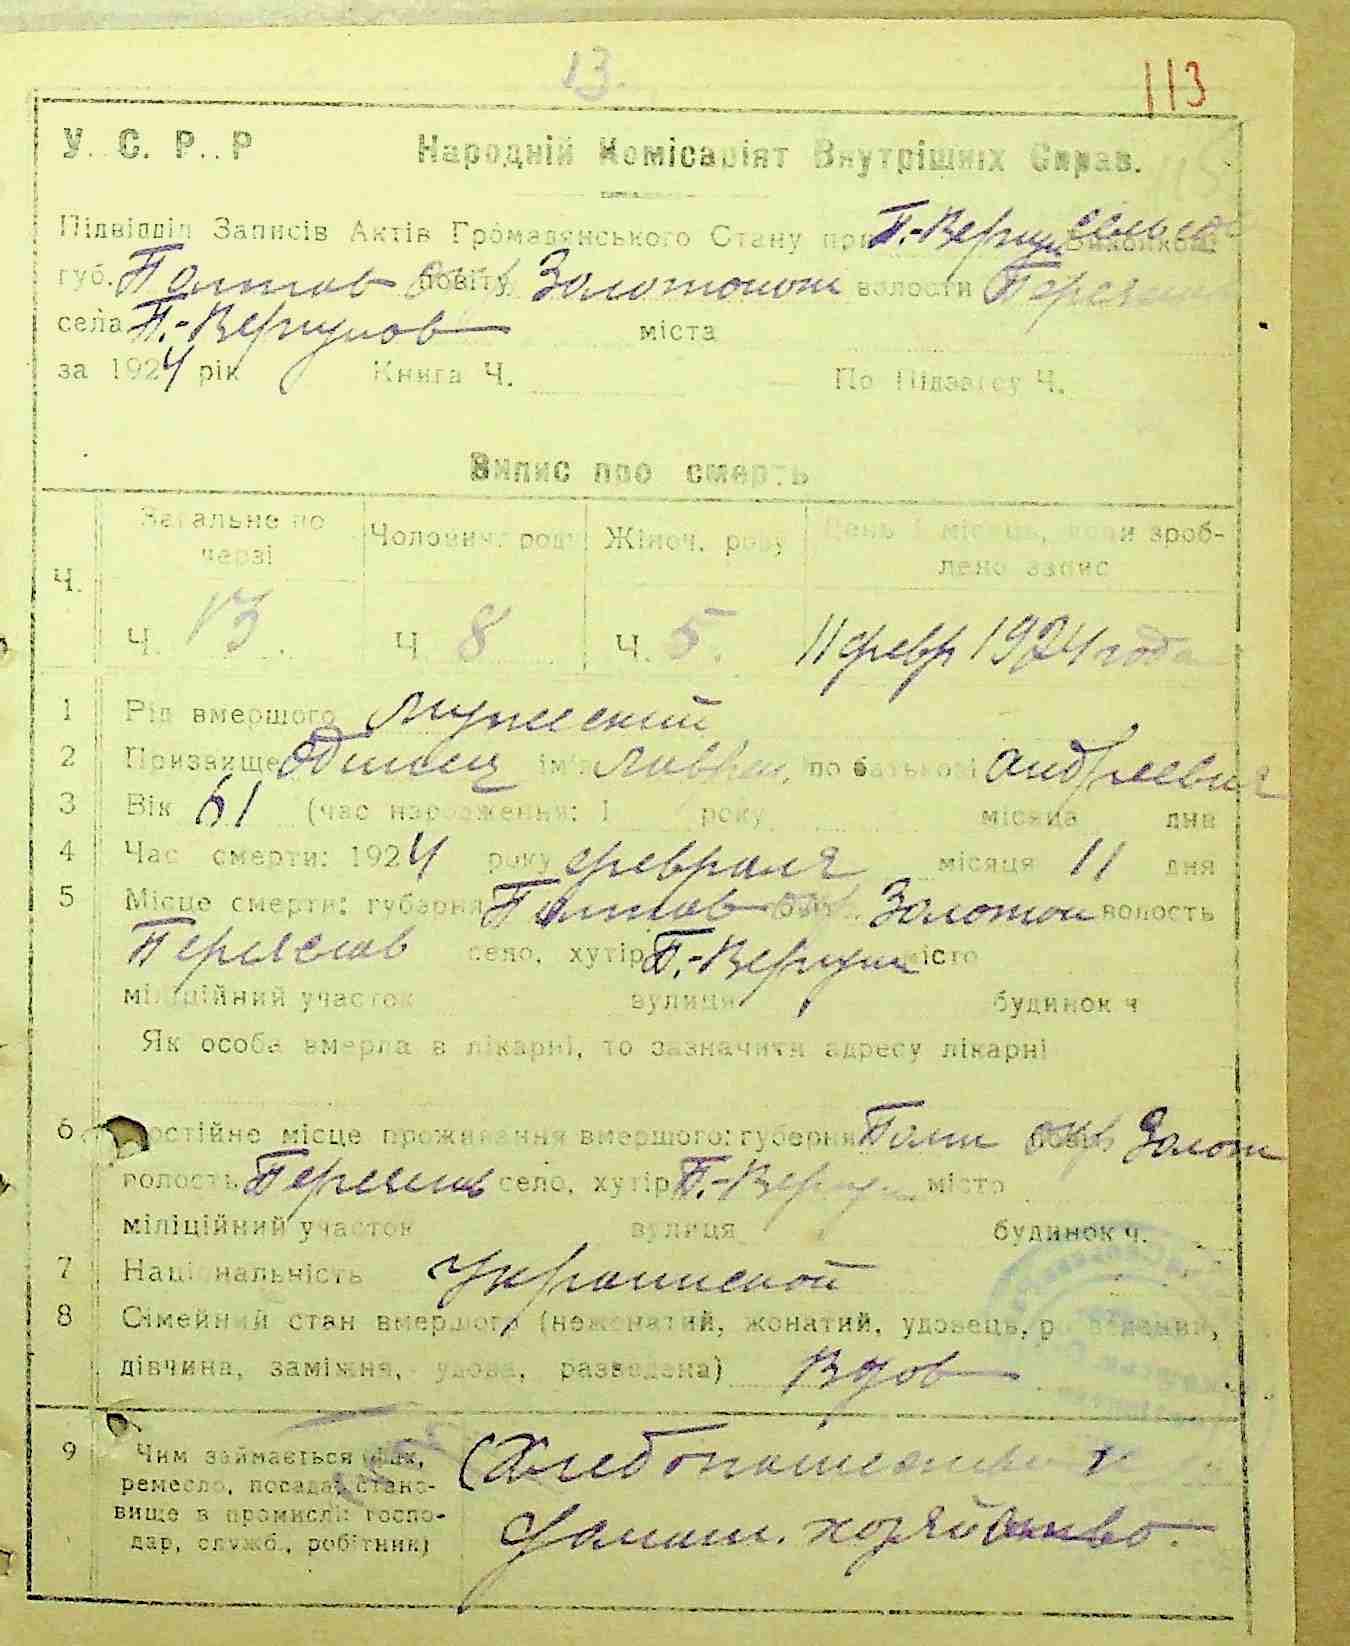 13.
113
У. С. Р. Р
Народній Комісаріят Внутрішніх Справ.
Підвідділ Записів Актів Громадянського Стану при П.-Вергун Виконкомі
губ. Полтав повіту Золотонош волости Переяслав
села П.-Вергунов міста
за 1924 рік Книга Ч. По Підзагсу Ч.
Випис про смерть
Ч.
Загальне по черзі
Чоловіч. роду
Жіноч. роду
День і місяць, коли зроб-
лено запис
Ч. 13. Ч. 8 Ч. 5. 11 февр 1924 года
1 Рід вмершого мужеский
2 Призвище Одинец ім'я по батькові Андреевич
3 Вік 61 (час народження: 1 року місяця дня
4 Час смерти: 1924 року февраля місяця 11 дня
5 Місце смерти: губерня Полтав Золотон волость
Переяслав село, хутір П.-Вергун місто
міліційний участок вулиця будинок ч
Як особа вмерла в лікарні, то зазначити адресу лікарні
6 Постійне місце проживання вмершого: губерня Полт окр Золот
волость Переяслав село, хутір П.-Вергун місто
міліційний участок вулиця будинок ч.
7 Національність Украинской
8 Сімейний стан вмершого (неженатий, жонатий, удовець, розведений,
дівчина, заміжня, удова, разведена) Вдов
9 Чим займається (фах,
ремесло, посада, стано-
вище в промислі: госпо-
дар, служб., робітник)
Хлебопашество
хозяйство.